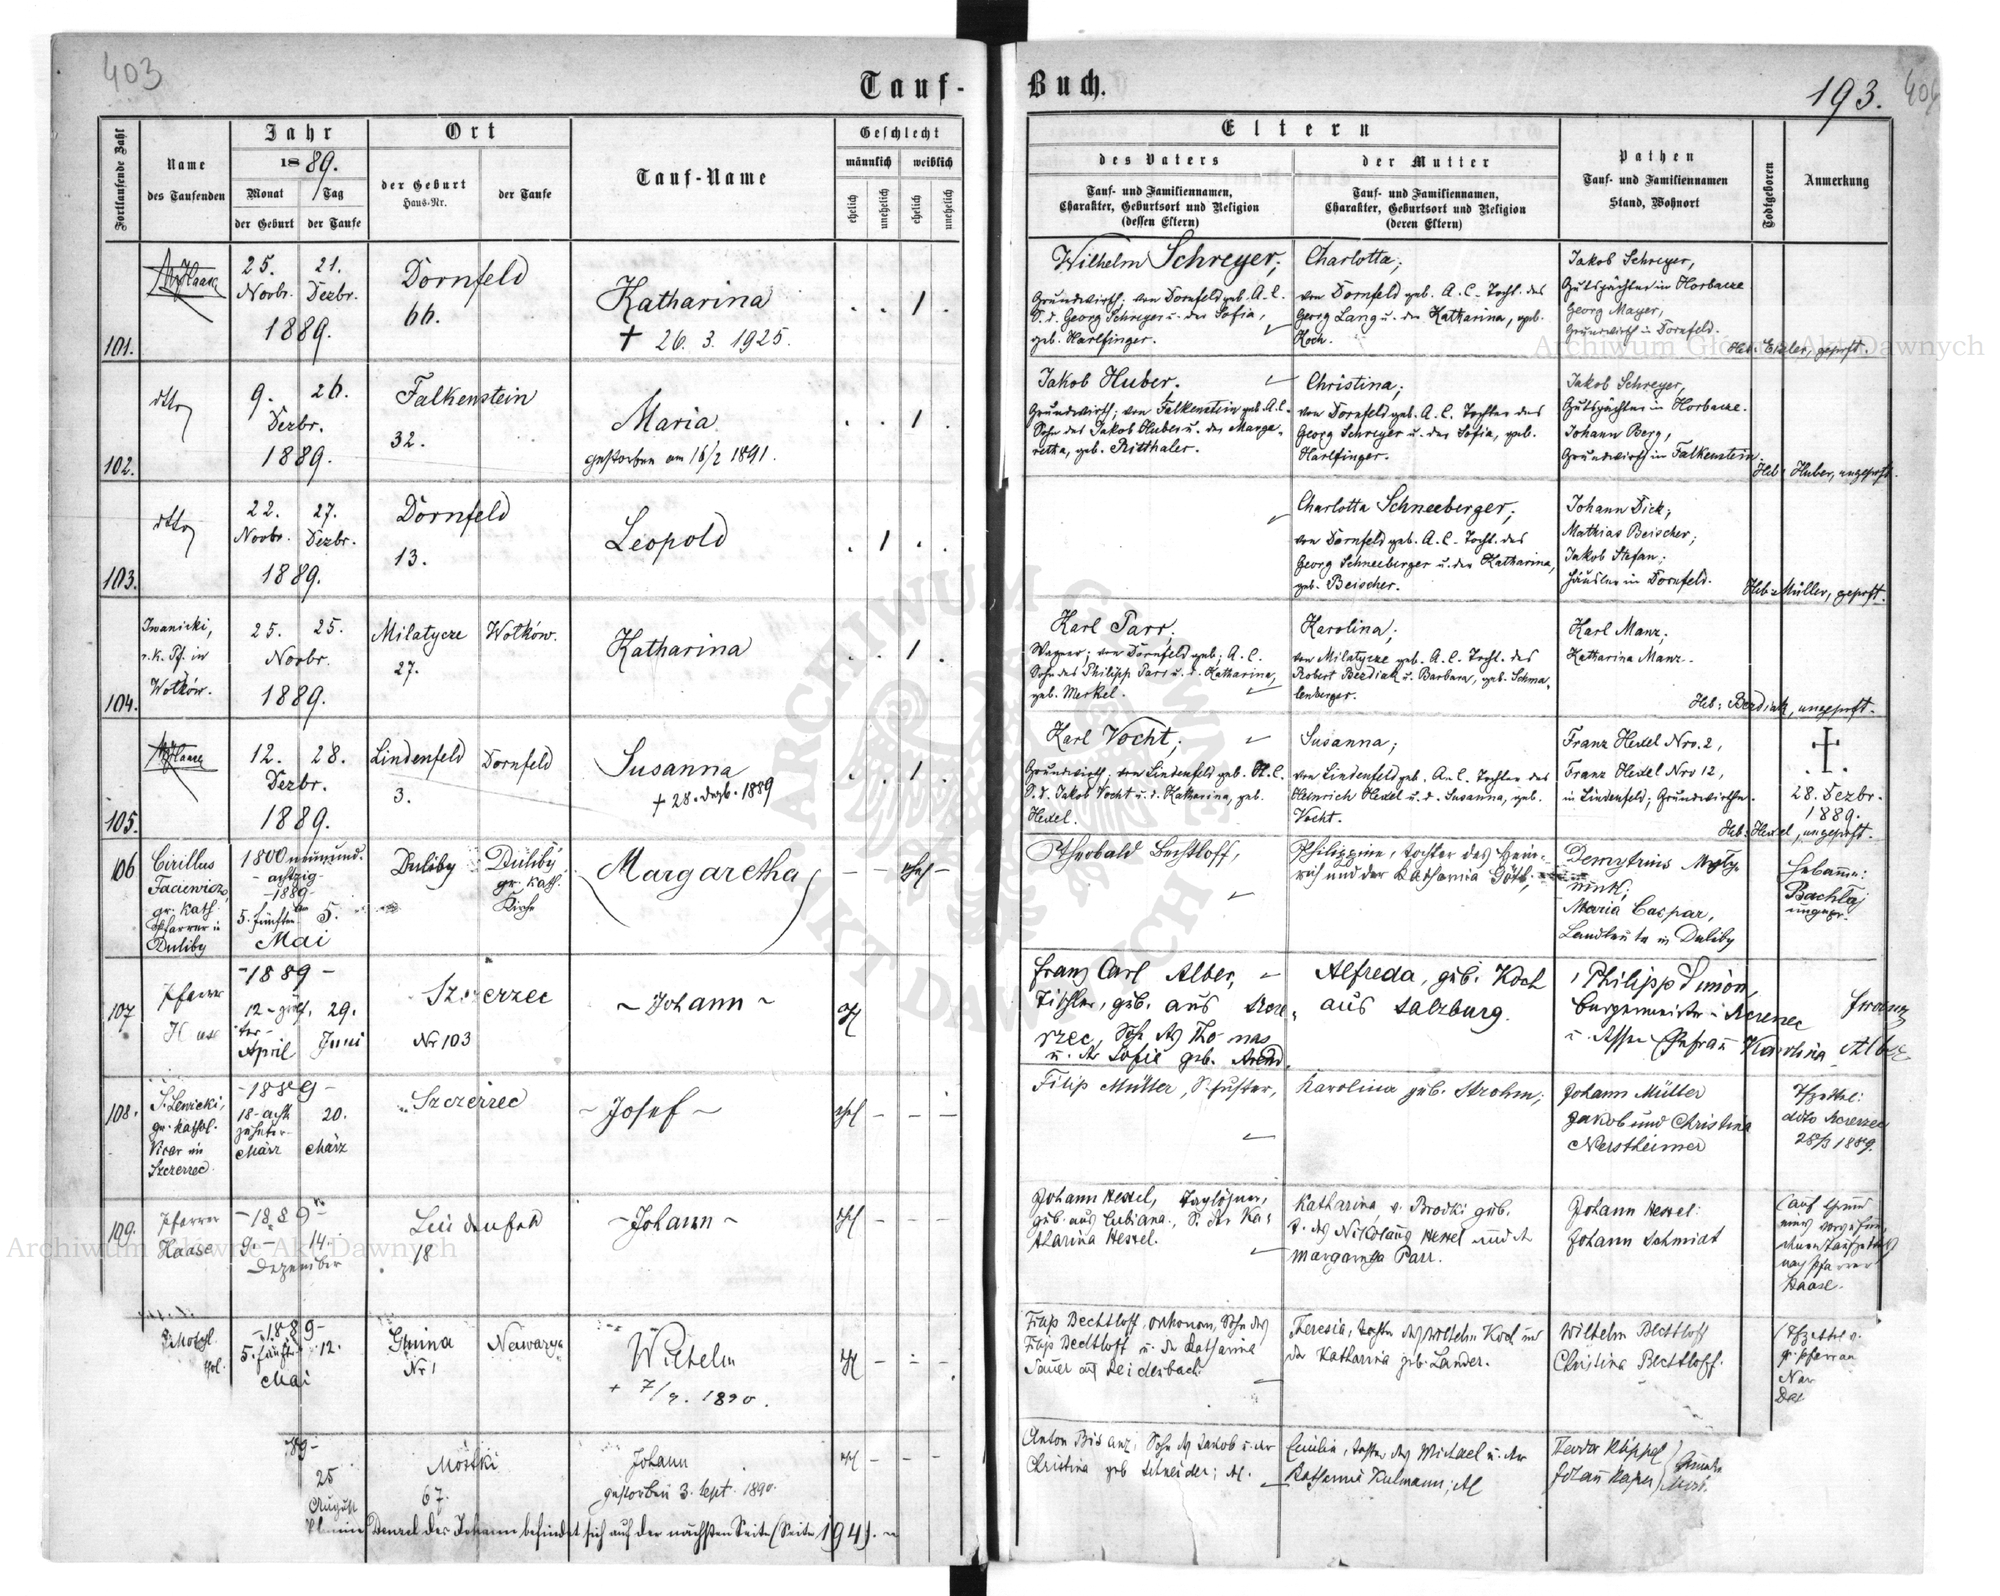 403
Tauf-
Buch.
193.
Fortlaufende Zahl
Name
des Taufenden
Jahr
1889.
Monat
Tag
der Geburt
der Taufe
Ort
der Geburt
Haus-Nr.
der Taufe
Tauf-Name
Geschlecht
männlich
weiblich
ehelich
unehelich
ehelich
unehelich
Eltern
des Vaters
Tauf- und Familiennamen,
Charakter, Geburtsort und Religion
(dessen Eltern)
der Mutter
Tauf- und Familiennamen,
Charakter, Geburtsort und Religion
(deren Eltern)
Pathen
Tauf- und Familiennamen
Stand, Wohnort
Todtgeboren
Anmerkung
101.
25. 21.
Novbr. Dezbr.
1889.
Dornfeld
66.
Katharina
† 26. 3. 1925.
. . 1 .
Wilhelm Schreyer;
Grundwirth; von Dornfeld geb. A.C.
S. d. Georg Schreyer u. der Sofia,
geb. Harlfinger.
Charlotta;
von Dornfeld geb. A. C. Tocht. des
Georg Lang u. der Katharina, geb.
Koch.
Jakob Schreyer,
Gutspächter in Horbacze
Georg Mayer,
Grundwirth in Dornfeld.
Heb: Etzler, geprft.
102.
dtto
9. 26.
Dezbr.
1889.
Falkenstein
32.
Maria
gestorben am 16/2 1891.
. . 1 .
Jakob Huber.
Grundwirth; von Falkenstein geb. A.C.
Sohn des Jakob Huber u. der Marga-
retha, geb. Ritthaler.
Christina;
von Dornfeld geb. A. C. Tochter des
Georg Schreyer u. der Sofia, geb.
Harlfinger.
Jakob Schreyer,
Gutspächter in Horbacze.
Johann Berg,
Grundwirth in Falkenstein.
Heb: Huber, ungeprft.
103.
dtto
22. 27.
Novbr. Dezbr.
1889.
Dornfeld
13.
Leopold
. 1 . .
Charlotta Schneeberger;
von Dornfeld geb. A. C. Tocht. des
Georg Schneeberger u. der Katharina,
geb. Beischer.
Johann Dick;
Mathias Beischer;
Jakob Stefan;
Häusler in Dornfeld.
Heb: Müller, geprft.
104.
Iwanicki,
r. k. Pf. in
Wołków.
25. 25.
Novbr.
1889.
Milatycze
27.
Wołków.
Katharina
. . 1 .
Karl Parr;
Wagner; von Dornfeld geb; A. C.
Sohn des Philipp Parr u. d. Katharina,
geb. Merkel.
Karolina;
von Milatycze geb. A. C. Tocht. des
Robert Berdiak u. Barbara, geb. Schma-
lenberger.
Karl Manz;
Katharina Manz.
Heb: Berdiak, ungeprft.
105.
12. 28.
Dezbr.
1889.
Lindenfeld
3.
Dornfeld
Susanna
† 28. Dezb. 1889
. . 1 .
Karl Vocht;
Grundwirth; von Lindenfeld geb. A. C.
S. d. Jakob Vocht u. d. Katharina, geb.
Hexel.
Susanna;
von Lindenfeld geb. A. C. Tochter des
Heinrich Hexel u. d. Susanna, geb.
Vocht.
Franz Hexel Nro. 2,
Franz Hexel Nro 12,
in Lindenfeld; Grundwirthe.
28. Dezbr.
1889.
Heb: Hexel, ungeprft.
106
Cirillus
gr. kath.
Pfarrer in
Duliby
1800 neunund-
achtzig-
-1889-
5. fünften 5.
Mai
Duliby
Duliby
gr. kath.
Kirche
Margaretha
Theobald Bechtloff,
Philippine, Tochter des Hein-
rich und der Katharina Göttl,
Maria Caspar,
Landleute in Duliby
Hebamme:
Bachtaj
ungepr.
107
Pfarrer
-1889-
29.
April Juni
Szczerzec
Nr 103
~Johann~
Franz Carl Alber,
Tischler, geb. aus Szcze-
rzec, Sohn des Thomas
u. der Sofie geb.
Alfreda, geb. Koch
aus Salzburg.
Philipp Simon,
Burgermeister in Szczerzec
Karolina Alber
108.
S. Lewicki,
gr. kathol.
Vicar in
Szczerzec
-1889-
18-acht
zehnter- 20.
März März
Szczerzec
-Josef-
Filip Müller, Schuster,
Karolina geb. Strohm;
Johann Müller
Jakob und Christina
Nerstheimer
dtto Szczerzec
28/3 1889.
109.
Pfarrer
Haase
-1889-
9. 14.
Dezember
Lindenfeld
18
-Johann-
Johann Hexel, Taglöhner,
geb. aus Lubiana, S. der Ka-
tharina Hexel.
Katharina v. Brodki geb.
T. des Nikolaus Hexel und der
Margaretha Parr.
Johann Hexel:
Johann Schmidt
(auf Grund
nach Pfarrer
Haase.
-1889-
5. fünft 12.
Mai
Gmina
Nr 1
Nawarya
Wilhelm
+ 7/9. 1890.
Filip Bechtloff, Oekonom, Sohn des
Filip Bechtloff u. der Katharina
Sauer aus Reichenbach
Theresia, Tochter des Wilhelm Koch und
der Katharina geb. Lander.
Wilhelm Bechtloff
Christina Bechtloff.
89-
25
August
Mostki
67.
Johann
gestorben 3. Sept. 1890.
Anton Bisanz, Sohn des Jakob u. der
Christina geb Schneider; AC.
Emilia, Tochter des Michael u. der
Katharina Kulmann; AC
Johann
befindet sich auf der nächsten Seite (Seite 194).
Archiwum Główne Akt Dawnych
Archiwum Główne Akt Dawnych
ARCHIWUM GŁÓWNE AKT DAWNYCH